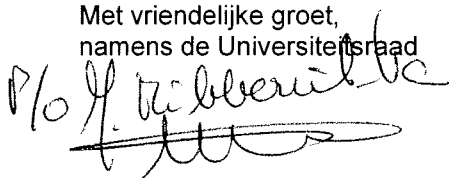 Met vriendelijke groet,
namens de Universiteitsraad
P/o